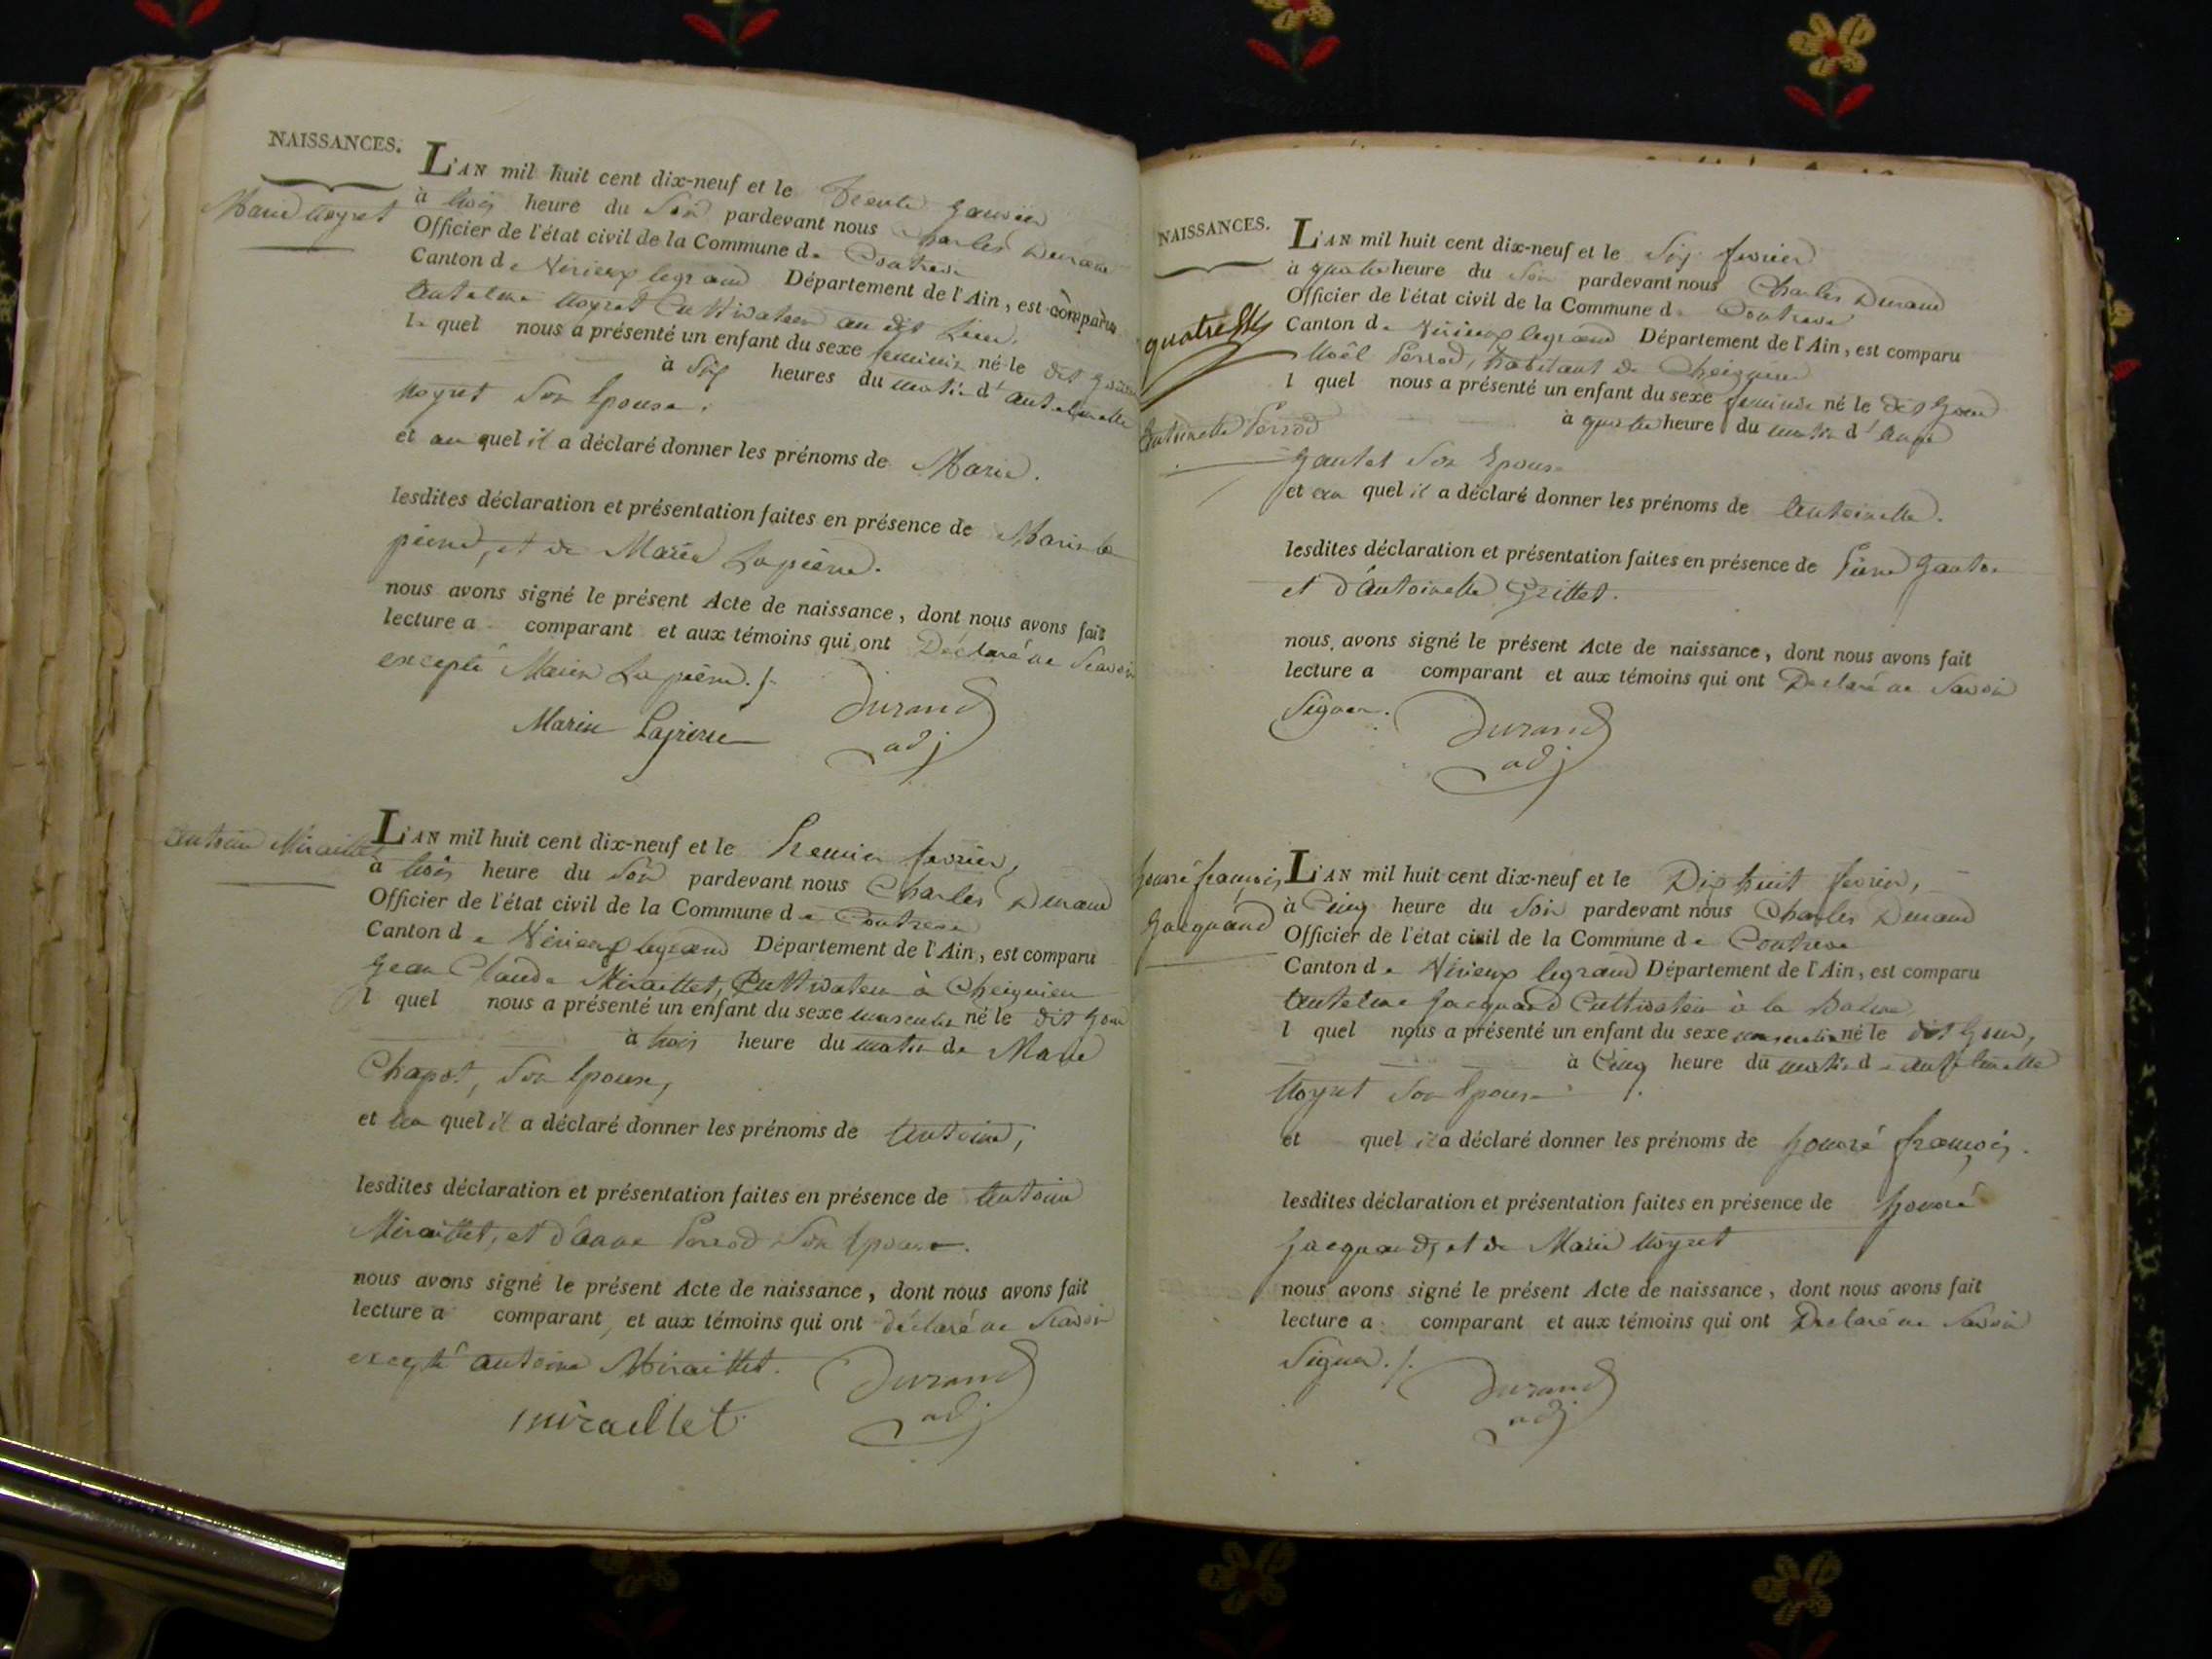 NAISSANCES.
Marie Noyret
L'AN mil huit cent dix-neuf et le Trente Janvier
à trois heure du Soir pardevant nous Charles Durand
Officier de l'état civil de la Commune de Contrevo
Canton de Virieux legrand Département de l'Ain, est comparu
Antelme Noyret Cultivateur au dit Lieu,
le quel nous a présenté un enfant du sexe feminin né le dit Jour
à Six heures du matin d'Antelmette
Noyret Son Epouse,
et au quel il a déclaré donner les prénoms de Marie.
lesdites déclaration et présentation faites en présence de Marin la
pierre, et de Marie Lapierre.
nous avons signé le présent Acte de naissance, dont nous avons fait
lecture a comparant et aux témoins qui ont Déclaré ne Scavoir
excepté Marin Lapierre./.
Marin Lapierre Durand
adj
Antoine Miraillet
L'AN mil huit cent dix-neuf et le Premier fevrier,
à trois heure du Soir pardevant nous Charles Durand
Officier de l'état civil de la Commune de Contrevo
Canton de Virieux legrand Département de l'Ain, est comparu
Jean Claude Miraillet, Cultivateur à Cheignieu
l quel nous a présenté un enfant du sexe masculin né le dit Jour
à trois heure du matin de Marie
Chapot, Son Epouse,
et au quel il a déclaré donner les prénoms de Antoine,
lesdites déclaration et présentation faites en présence de Antoine
Miraillet, et d'Anne Perrod Son Epouse.
nous avons signé le présent Acte de naissance, dont nous avons fait
lecture a comparant, et aux témoins qui ont déclaré ne Scavoir
excepté antoine Miraillet.
miraillet Durand
adj
NAISSANCES.
Antoinette Perrod
L'AN mil huit cent dix-neuf et le Six fevrier
à quatre heure du Soir pardevant nous Charles Durand
Officier de l'état civil de la Commune d. Contrevo
Canton de Virieux legrand Département de l'Ain, est comparu
Noël Perrod, habitant de Cheignieu
l quel nous a présenté un enfant du sexe feminin né le dit Jour
à quatre heure du matin d'Anne
Gantet Son Epouse
et au quel il a déclaré donner les prénoms de Antoinette.
lesdites déclaration et présentation faites en présence de Pierre
et d'Antoinette Grittet.
nous avons signé le présent Acte de naissance, dont nous avons fait
lecture a comparant et aux témoins qui ont Declaré ne Savoir
Signer.
Durand
adj
honoré françois
Jacquand
L'AN mil huit cent dix-neuf et le Dix huit fevrier,
à Cinq heure du Soir pardevant nous Charles Durand
Officier de l'état civil de la Commune de Contrevo
Canton de Virieux legrand Département de l'Ain, est comparu
Antelme Jacquand Cultivateur à la Balme
l quel nous a présenté un enfant du sexe masculin né le dit Jour,
à Cinq heure du matin d antelmette
Noyret Son Epouse
et quel il a déclaré donner les prénoms de honoré françois.
lesdites déclaration et présentation faites en présence de honoré
Jacquand, et de Marie Noyret
nous avons signé le présent Acte de naissance, dont nous avons fait
lecture a comparant et aux témoins qui ont Declaré ne Savoir
Signer./.
Durand
adj